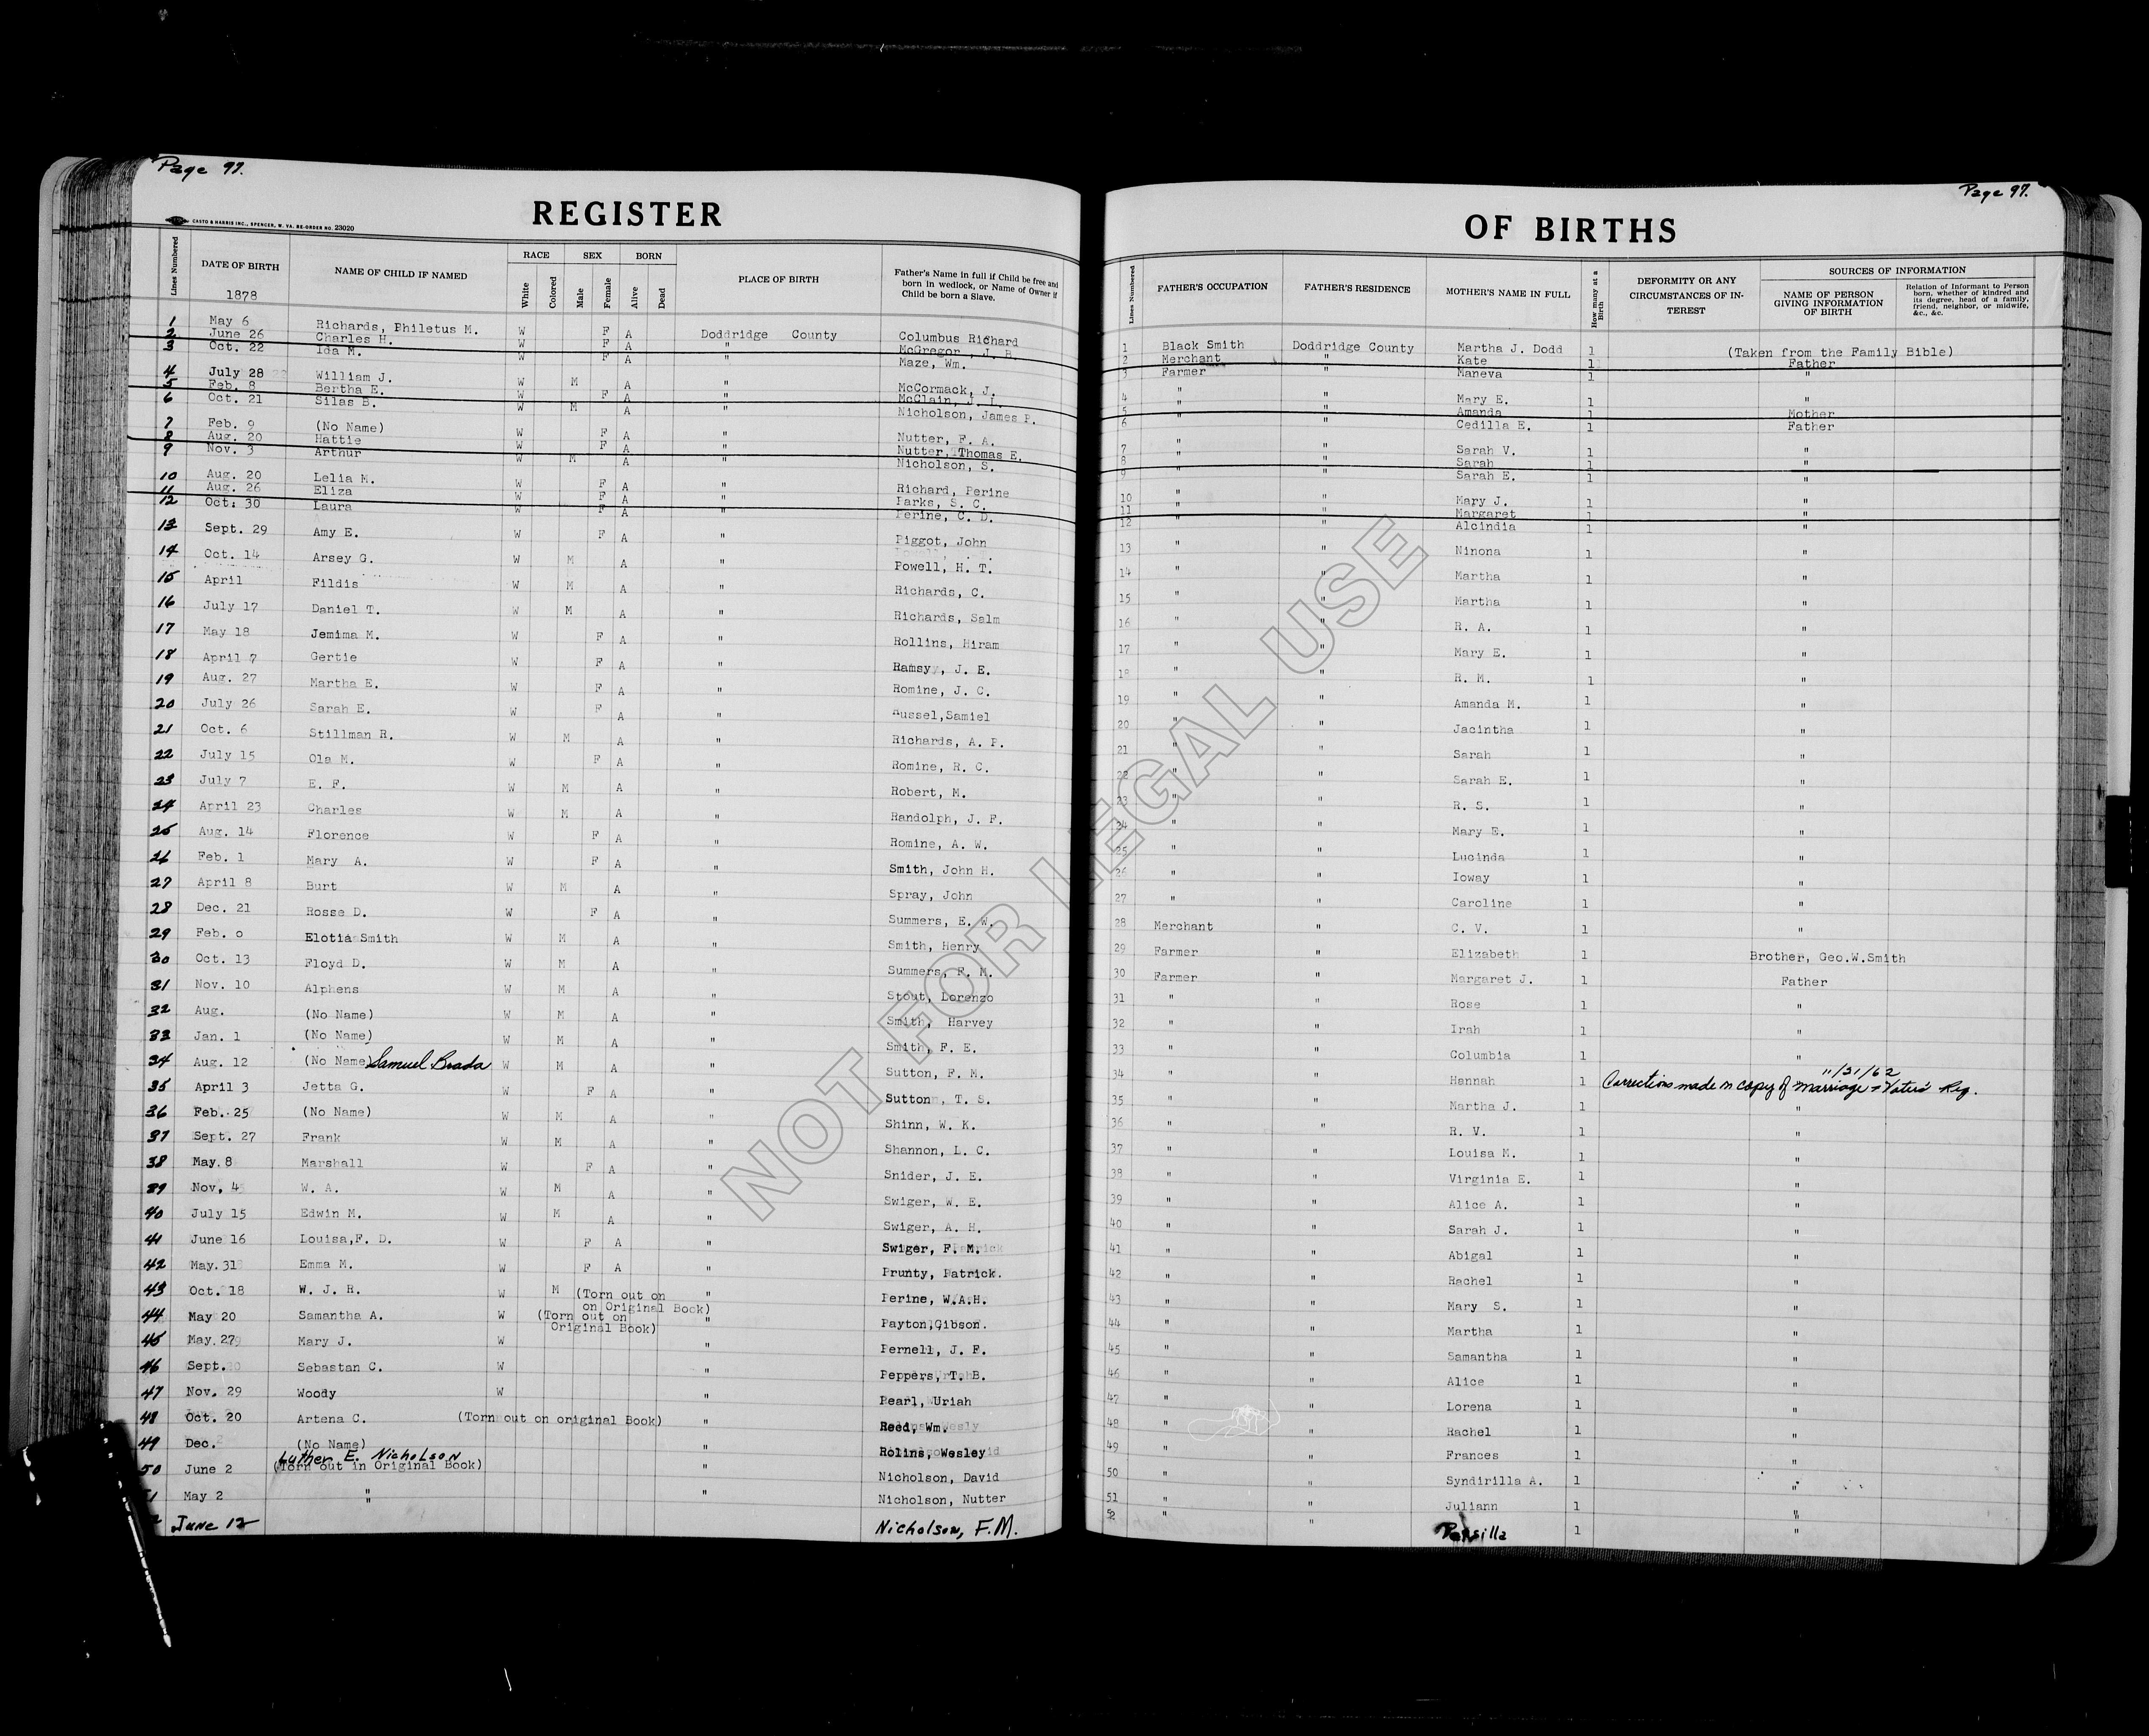 Page 97.
REGISTER
CASTO & HARRIS INC., SPENCER, W. VA. RE-ORDER NO. 23020
Lines Numbered DATE OF BIRTH NAME OF CHILD IF NAMED RACE SEX BORN PLACE OF BIRTH Father's Name in full if Child be free and born in wedlock, or Name of Owner if Child be born a Slave.
1878 White Colored Male Female Alive Dead
1 May 6 Richards, Philetus M. W F A Doddridge County Columbus Richard
2 June 26 Charles H. W F A " McGregor, J. B.
3 Oct. 22 Ida M. W F A " Maze, Wm.
4 July 28 William J. W M A " McCormack, J.
5 Feb. 8 Bertha E. W F A " McClain, J. L.
6 Oct. 21 Silas B. W M A " Nicholson, James P.
7 Feb. 9 (No Name) W F A " Nutter, F. A.
8 Aug. 20 Hattie W F A " Nutter, Thomas E.
9 Nov. 3 Arthur W M A " Nicholson, S.
10 Aug. 20 Lelia M. W F A " Richard, Perine
11 Aug. 26 Eliza W F A " Parks, S. C.
12 Oct. 30 Laura W F A " Perine, C. D.
13 Sept. 29 Amy E. W F A " Piggot, John
14 Oct. 14 Arsey G. W M A " Powell, H. T.
15 April Fildis W M A " Richards, C.
16 July 17 Daniel T. W M A " Richards, Selm
17 May 18 Jemima M. W F A " Rollins, Hiram
18 April 7 Gertie W F A " Ramsy, J. E.
19 Aug. 27 Martha E. W F A " Romine, J. C.
20 July 26 Sarah E. W F A " Russel,Samiel
21 Oct. 6 Stillman R. W M A " Richards, A. P.
22 July 15 Ola M. W F A " Romine, R. C.
23 July 7 E. F. W M A " Robert, M.
24 April 23 Charles W M A " Randolph, J. F.
25 Aug. 14 Florence W F A " Romine, A. W.
26 Feb. 1 Mary A. W F A " Smith, John H.
27 April 8 Burt W M A " Spray, John
28 Dec. 21 Rosse D. W F A " Summers, E. W.
29 Feb. 0 Elotia Smith W M A " Smith, Henry
30 Oct. 13 Floyd D. W M A " Summers, F. M.
31 Nov. 10 Alphens W M A " Stout, Lorenzo
32 Aug. (No Name) W M A " Smith, Harvey
33 Jan. 1 (No Name) W M A " Smith, F. E.
34 Aug. 12 (No Name) Samuel Brada W M A " Sutton, F. M.
35 April 3 Jetta G. W F A " Sutton, T. S.
36 Feb. 25 (No Name) W M A " Shinn, W. K.
37 Sept. 27 Frank W M A " Shannon, L. C.
38 May 8 Marshall W F A " Snider, J. E.
39 Nov, 4 W. A. W M A " Swiger, W. E.
40 July 15 Edwin M. W M A " Swiger, A. H.
41 June 16 Louisa,F. D. W F A " Swiger, F. M.
42 May. 31 Emma M. W F A " Prunty, Patrick.
43 Oct. 18 W. J. R. W M (Torn out on on Original Book) " Perine, W.A.H.
44 May 20 Samantha A. W (Torn out on Original Book) " Payton,Gibson.
45 May. 27 Mary J. W " Pernell, J. F.
46 Sept. Sebastan C. W " Peppers, T. B.
47 Nov. 29 Woody W " Pearl, Uriah
48 Oct. 20 Artena C. (Torn out on original Book) " Reed, Wm.
49 Dec. (No Name) " Rolins, Wesley
Luther E. Nicholson
50 June 2 (Torn out in Original Book) " Nicholson, David
51 May 2 " " Nicholson, Nutter
June 12 " Nicholson, F.M.
Page 97.
OF BIRTHS
Lines Numbered FATHER'S OCCUPATION FATHER'S RESIDENCE MOTHER'S NAME IN FULL How many at a Birth DEFORMITY OR ANY CIRCUMSTANCES OF INTEREST SOURCES OF INFORMATION
NAME OF PERSON GIVING INFORMATION OF BIRTH Relation of Informant to Person born, whether of kindred and its degree, head of a family, friend, neighbor, or midwife, &c., &c.
1 Black Smith Doddridge County Martha J. Dodd 1 (Taken from the Family Bible)
2 Merchant " Kate 1 Father
3 Farmer " Maneva 1 "
4 " " Mary E. 1 "
5 " " Amanda 1 Mother
6 " " Cedilla E. 1 Father
7 " " Sarah V. 1 "
8 " " Sarah 1 "
9 " " Sarah E. 1 "
10 " " Mary J. 1 "
11 " " Margaret 1 "
12 " " Alcindia 1 "
13 " " Ninona 1 "
14 " " Martha 1 "
15 " " Martha 1 "
16 " " R. A. 1 "
17 " " Mary E. 1 "
18 " " R. M. 1 "
19 " " Amanda M. 1 "
20 " " Jacintha 1 "
21 " " Sarah 1 "
22 " " Sarah E. 1 "
23 " " R. S. 1 "
24 " " Mary E. 1 "
25 " " Lucinda 1 "
26 " " Ioway 1 "
27 " " Caroline 1 "
28 Merchant " C. V. 1 "
29 Farmer " Elizabeth 1 Brother, Geo.W.Smith
30 Farmer " Margaret J. 1 Father
31 " " Rose 1 "
32 " " Irah 1 "
33 " " Columbia 1 "
11/31/62
34 " " Hannah 1 Corrections made on copy of Marriage & Voters Reg.
35 " " Martha J. 1 "
36 " " R. V. 1 "
37 " " Louisa M. 1 "
38 " " Virginia E. 1 "
39 " " Alice A. 1 "
40 " " Sarah J. 1 "
41 " " Abigal 1 "
42 " " Rachel 1 "
43 " " Mary S. 1 "
44 " " Martha 1 "
45 " " Samantha 1 "
46 " " Alice 1 "
47 " " Lorena 1 "
48 " " Rachel 1 "
49 " " Frances 1 "
50 " " Syndirilla A. 1 "
51 " " Juliann 1 "
52 " " Persilla 1 "
NOT FOR LEGAL USE